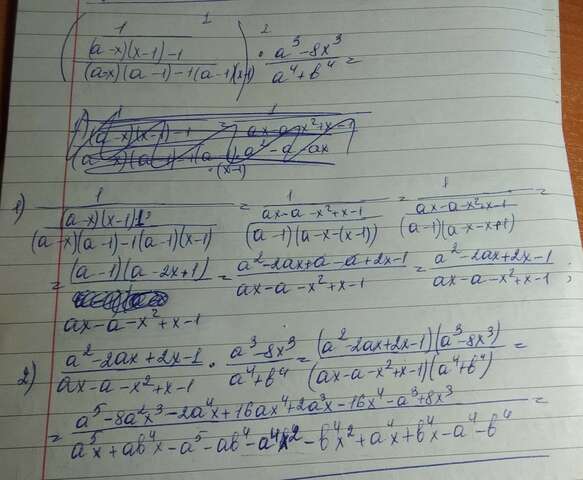 1 2
(1/(((a-x)(x-1)-1)/((a-x)(a-1)-1(a-1)(x-1)))) · (a³-8x³)/(a⁴+b⁴) =
1) 1/(((a-x)(x-1)1)/((a-x)(a-1)-1(a-1)(x-1))) = 1/((ax-a-x²+x-1)/((a-1)(a-x-(x-1)))) = 1/((ax-a-x²+x-1)/((a-1)(a-x-x+1))) =
= ((a-1)(a-2x+1))/(ax-a-x²+x-1) = (a²-2ax+a-a+2x-1)/(ax-a-x²+x-1) = (a²-2ax+2x-1)/(ax-a-x²+x-1) ;
2) (a²-2ax+2x-1)/(ax-a-x²+x-1) · (a³-8x³)/(a⁴+b⁴) = ((a²-2ax+2x-1)(a³-8x³))/((ax-a-x²+x-1)(a⁴+b⁴)) =
= (a⁵-8a²x³-2a⁴x+16ax⁴+2a³x-16x⁴-a³+8x³)/(a⁵x+ab⁴x-a⁵-ab⁴-a⁴x²-b⁴x²+a⁴x+b⁴x-a⁴-b⁴) =